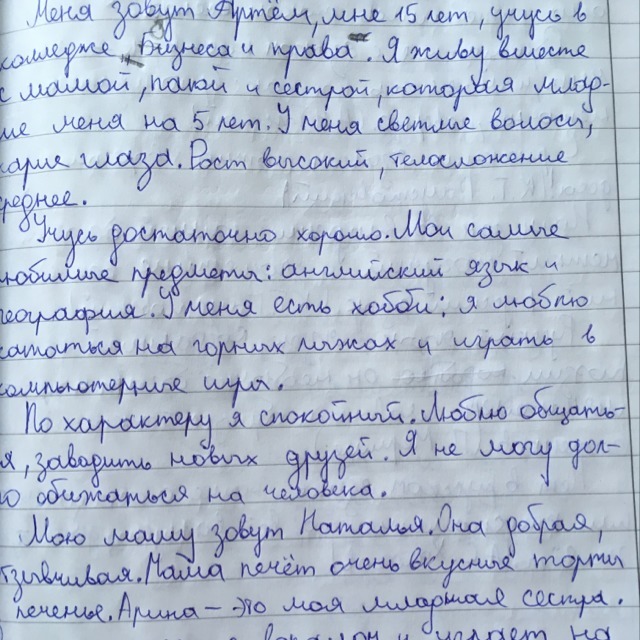 Меня зовут Артём, мне 15 лет, учусь в
колледже Бизнеса и права. Я живу вместе
с мамой, папой и сестрой, которая млад-
ше меня на 5 лет. У меня светлые волосы,
карие глаза. Рост высокий, телосложение
реднее.
Учусь достаточно хорошо. Мои самые
любимые предметы: английский язык и
география. У меня есть хобби: я люблю
кататься на горных лыжах и играть в
компьютерные игры.
По характеру я спокойный. Люблю общать-
я, заводить новых друзей. Я не могу дол-
ю обижаться на человека.
Мою маму зовут Наталья. Она добрая,
тзывчивая. Мама печёт очень вкусные торты
печенье. Арина – это моя младшая сестра.
и делает на